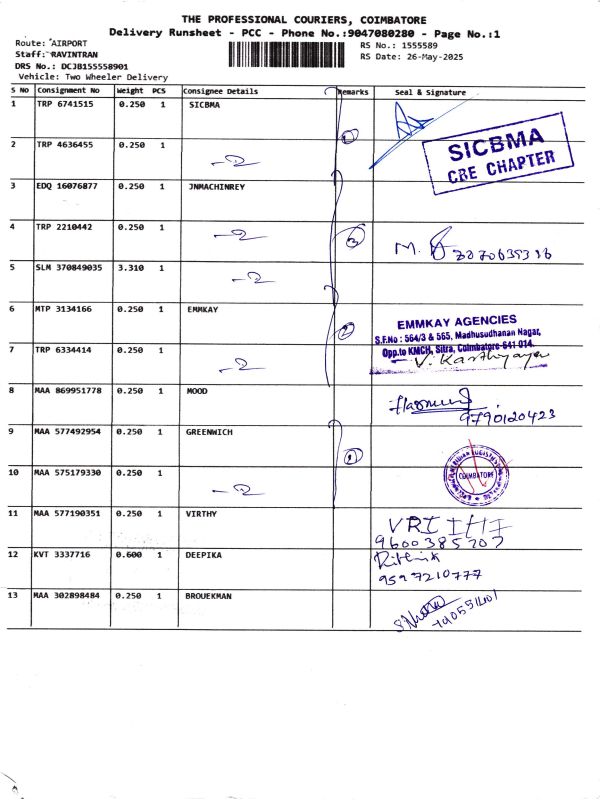 THE PROFESSIONAL COURIERS, COIMBATORE
Delivery Runsheet - PCC - Phone No.:9047080280 - Page No.:1
Route: AIRPORT
Staff: RAVINTRAN
DRS No.: DCJB155558901
Vehicle: Two Wheeler Delivery
RS No.: 1555589
RS Date: 26-May-2025
S No Consignment No Weight PCS Consignee Details Remarks Seal & Signature
1 TRP 6741515 0.250 1 SICBMA
SICBMA
CBE CHAPTER
2 TRP 4636455 0.250 1
3 EDQ 16076877 0.250 1 JNMACHINREY
4 TRP 2210442 0.250 1
5 SLM 370849035 3.310 1
6 MTP 3134166 0.250 1 EMMKAY
EMMKAY AGENCIES
S.F.No : 564/3 & 565, Madhusudhanan Nagar,
Opp.to KMCH, Sitra, Coimbatore-641 014.
7 TRP 6334414 0.250 1
8 MAA 869951778 0.250 1 MOOD
9790120423
9 MAA 577492954 0.250 1 GREENWICH
COIMBATORE
10 MAA 575179330 0.250 1
11 MAA 577190351 0.250 1 VIRTHY
9600385207
12 KVT 3337716 0.600 1 DEEPIKA
Rithik
9597210777
13 MAA 302898484 0.250 1 BROUEKMAN